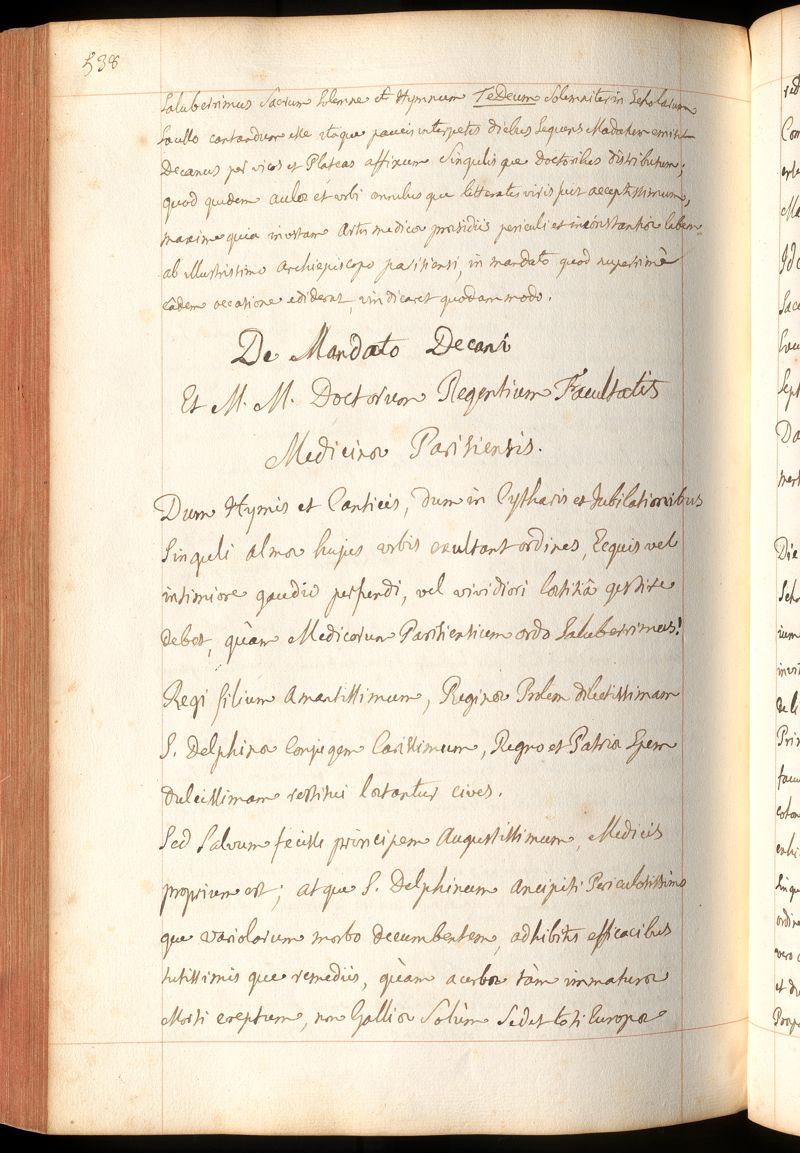 538
Saluberrimus Sacrum solemne et Hymnum TeDeum Solemniter in Scholarum
Sacello cantandum esse itaque paucis interjectis diebus Sequens Madatum emisit
Decanus per vicos et Plateas affixum Singulisque doctoribus distributum;
quod quidem aulæ et urbi omnibusque litteratis viris fuit acceptissimum,
maxime quia inustam Artis medicæ præsidiis periculi et inconstantiæ labem
ab illustrissimo archiepiscopo parisiensi, in mandato quod nuperrimè
eâdem occasione ediderat, vindicaret quodammodo.
De Mandato Decani
Et M. M. Doctorum Regentium Facultatis
Medicinæ Parisiensis.
Dum Hymis et Canticis, dum in Cytharis et Jubilationibus
Singuli almæ hujus urbis exultant ordines, Ecquis vel
intimiore gaudio perfundi, vel vividiori lætitiâ gestire
debet, quàm Medicorum Parisiensium ordo Saluberrimus!
Regi filium Amantissimum, Reginæ Prolem dilectissimam
S. Delphinæ Conjugem Carissimum, Regno et Patriæ Spem
dulcissimam restitui lætantur cives.
Sed Salvum fecisse principem Augustissimum, Medicis
proprium est; atque S. Delphinum Ancipiti Periculosissimo
que variolarum morbo decumbentem, adhibitis efficacibus
tutissimisque remediis, quàm acerbæ tàm immaturæ
Morti ereptum, non Galliæ Solùm Sed et toti Europæ